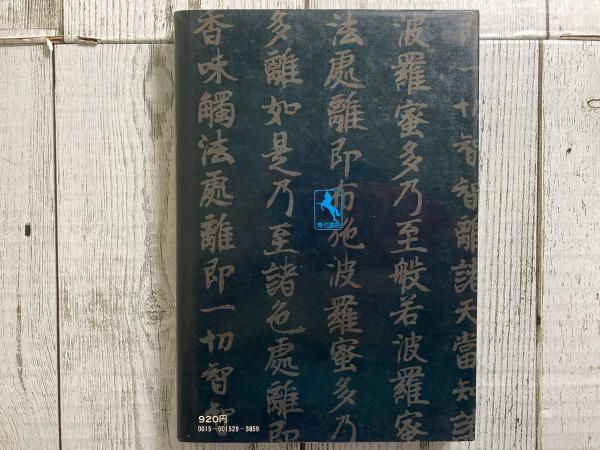 一切智智離諸天當知
波羅蜜多乃至般若波羅蜜
法處離即布施波羅蜜多乃
多離如是乃至諸色處離即
香味觸法處離即一切智
920円
0015-001529-3859